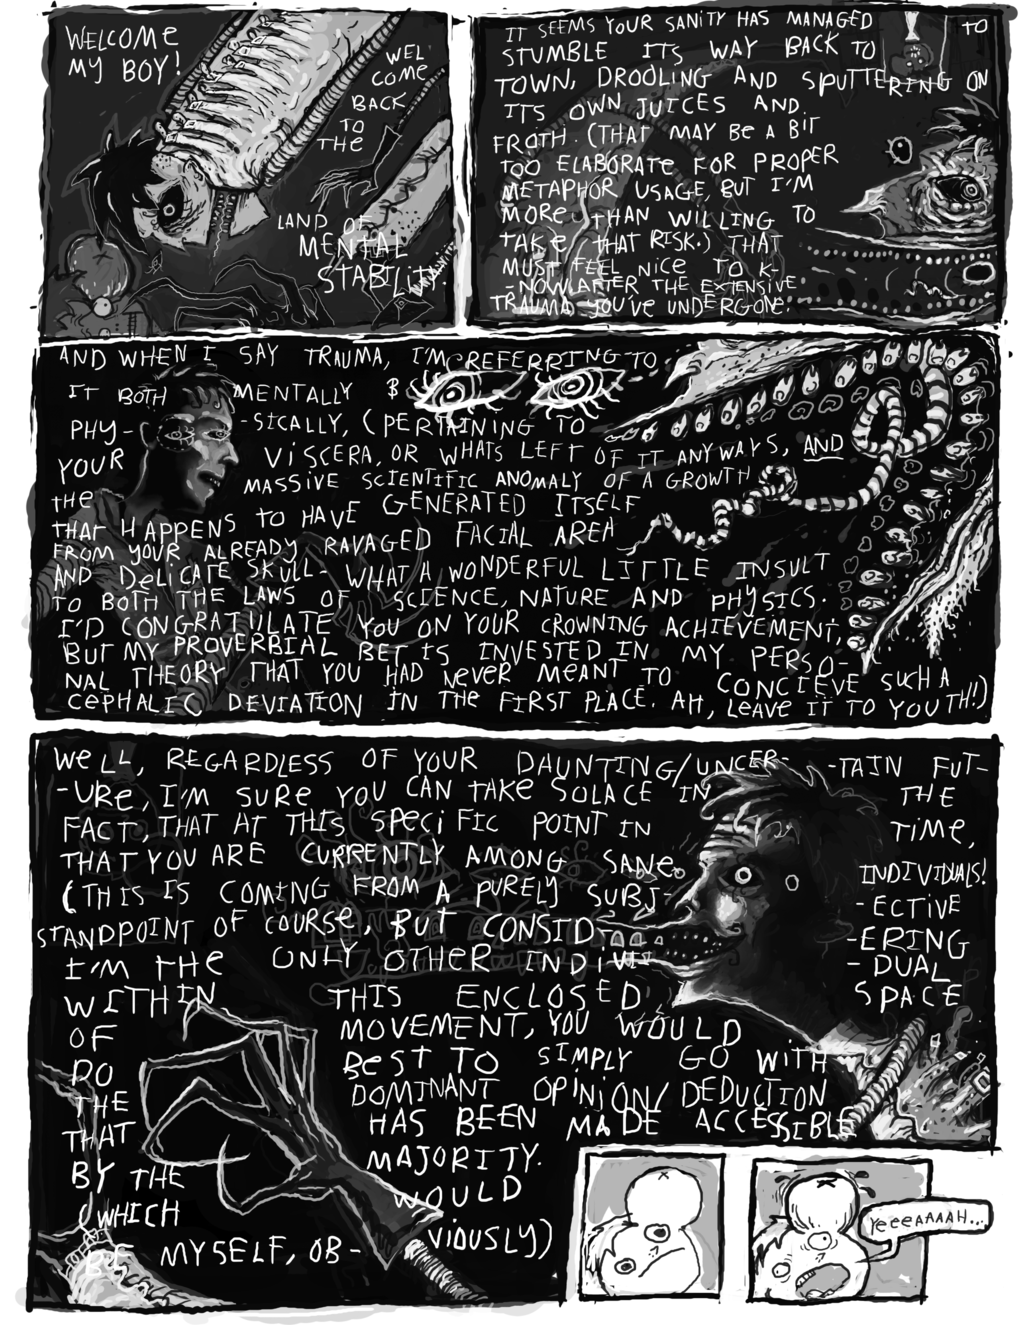 WELCOME
MY BOY!
WEL
COME
BACK
TO
THE
LAND OF
MENTAL
STABILITY.
IT SEEMS YOUR SANITY HAS MANAGED TO
STUMBLE ITS WAY BACK TO
TOWN, DROOLING AND SPUTTERING ON
ITS OWN JUICES AND
FROTH (THAT MAY BE A BIT
TOO ELABORATE FOR PROPER
METAPHOR USAGE BUT I'M
MORE THAN WILLING TO
TAKE THAT RISK.) THAT
MUST FEEL NICE TO K-
-NOW AFTER THE EXTENSIVE
TRAUMA YOU'VE UNDERGONE.
AND WHEN I SAY TRAUMA, I'M REFERRING TO
IT BOTH MENTALLY &
PHY- -SICALLY, (PERTAINING TO
YOUR VISCERA, OR WHATS LEFT OF IT ANYWAYS, AND
THE MASSIVE SCIENTIFIC ANOMALY OF A GROWTH
THAT HAPPENS TO HAVE GENERATED ITSELF
FROM YOUR ALREADY RAVAGED FACIAL AREA
AND DELICATE SKULL. WHAT A WONDERFUL LITTLE INSULT
TO BOTH THE LAWS OF SCIENCE, NATURE AND PHYSICS.
I'D CONGRATULATE YOU ON YOUR CROWNING ACHIEVEMENT,
BUT MY PROVERBIAL BET IS INVESTED IN MY PERSO-
NAL THEORY THAT YOU HAD NEVER MEANT TO CONCIEVE SUCH A
CEPHALIC DEVIATION IN THE FIRST PLACE. AH, LEAVE IT TO YOUTH!)
WELL, REGARDLESS OF YOUR DAUNTING/UNCER- -TAIN FUT-
-URE, I'M SURE YOU CAN TAKE SOLACE IN THE
FACT, THAT AT THIS SPECIFIC POINT IN TIME,
THAT YOU ARE CURRENTLY AMONG SANE INDIVIDUALS!
(THIS IS COMING FROM A PURELY SUBJ- -ECTIVE
STANDPOINT OF COURSE, BUT CONSID- -ERING
I'M THE ONLY OTHER INDIVI- -DUAL
WITHIN THIS ENCLOSED SPACE
OF MOVEMENT, YOU WOULD
DO BEST TO SIMPLY GO WITH
THE DOMINANT OPINION/DEDUCTION
THAT HAS BEEN MADE ACCESSIBLE
BY THE MAJORITY.
(WHICH WOULD
BE MYSELF, OB- -VIOUSLY)
YEEEAAAAH...